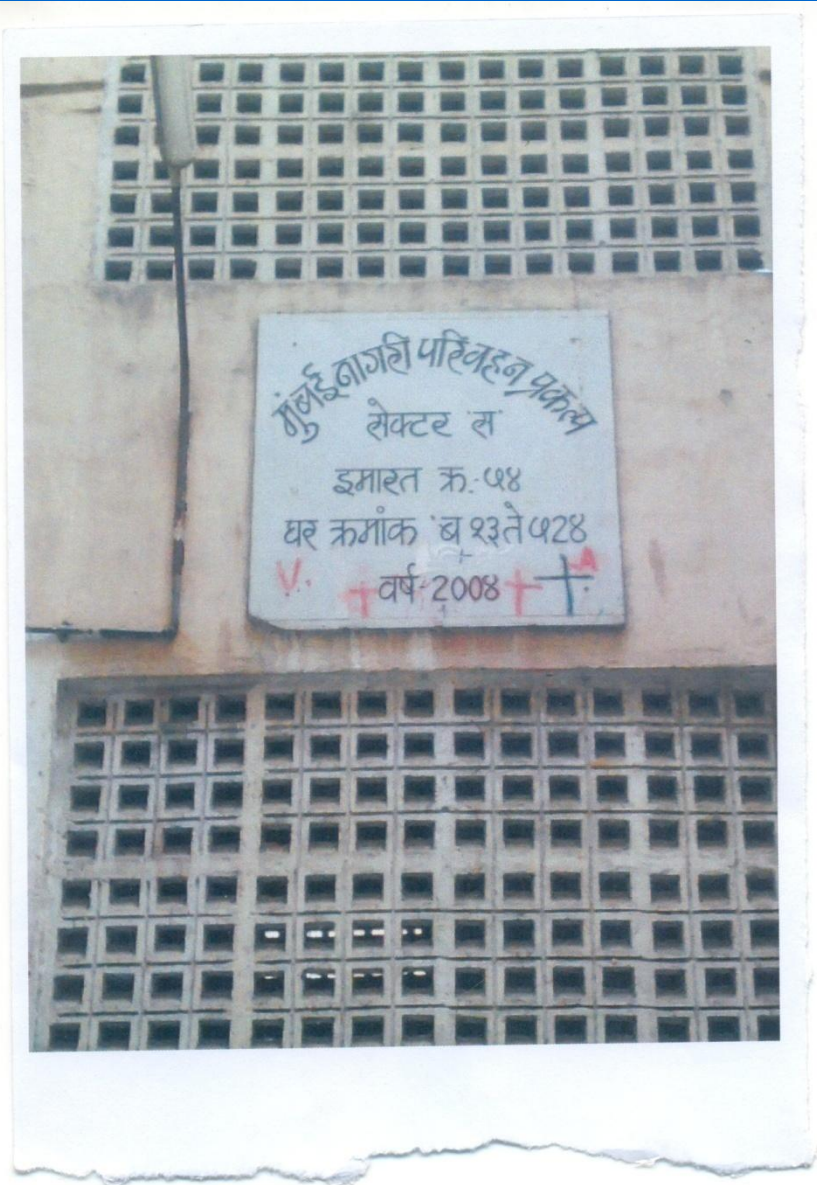 मुंबई नागरी परिवहन प्रकल्प
सेक्टर स
इमारत क्र.-५४
घर क्रमांक ब १३ ते ५२४
V. + वर्ष-२००४ + + A